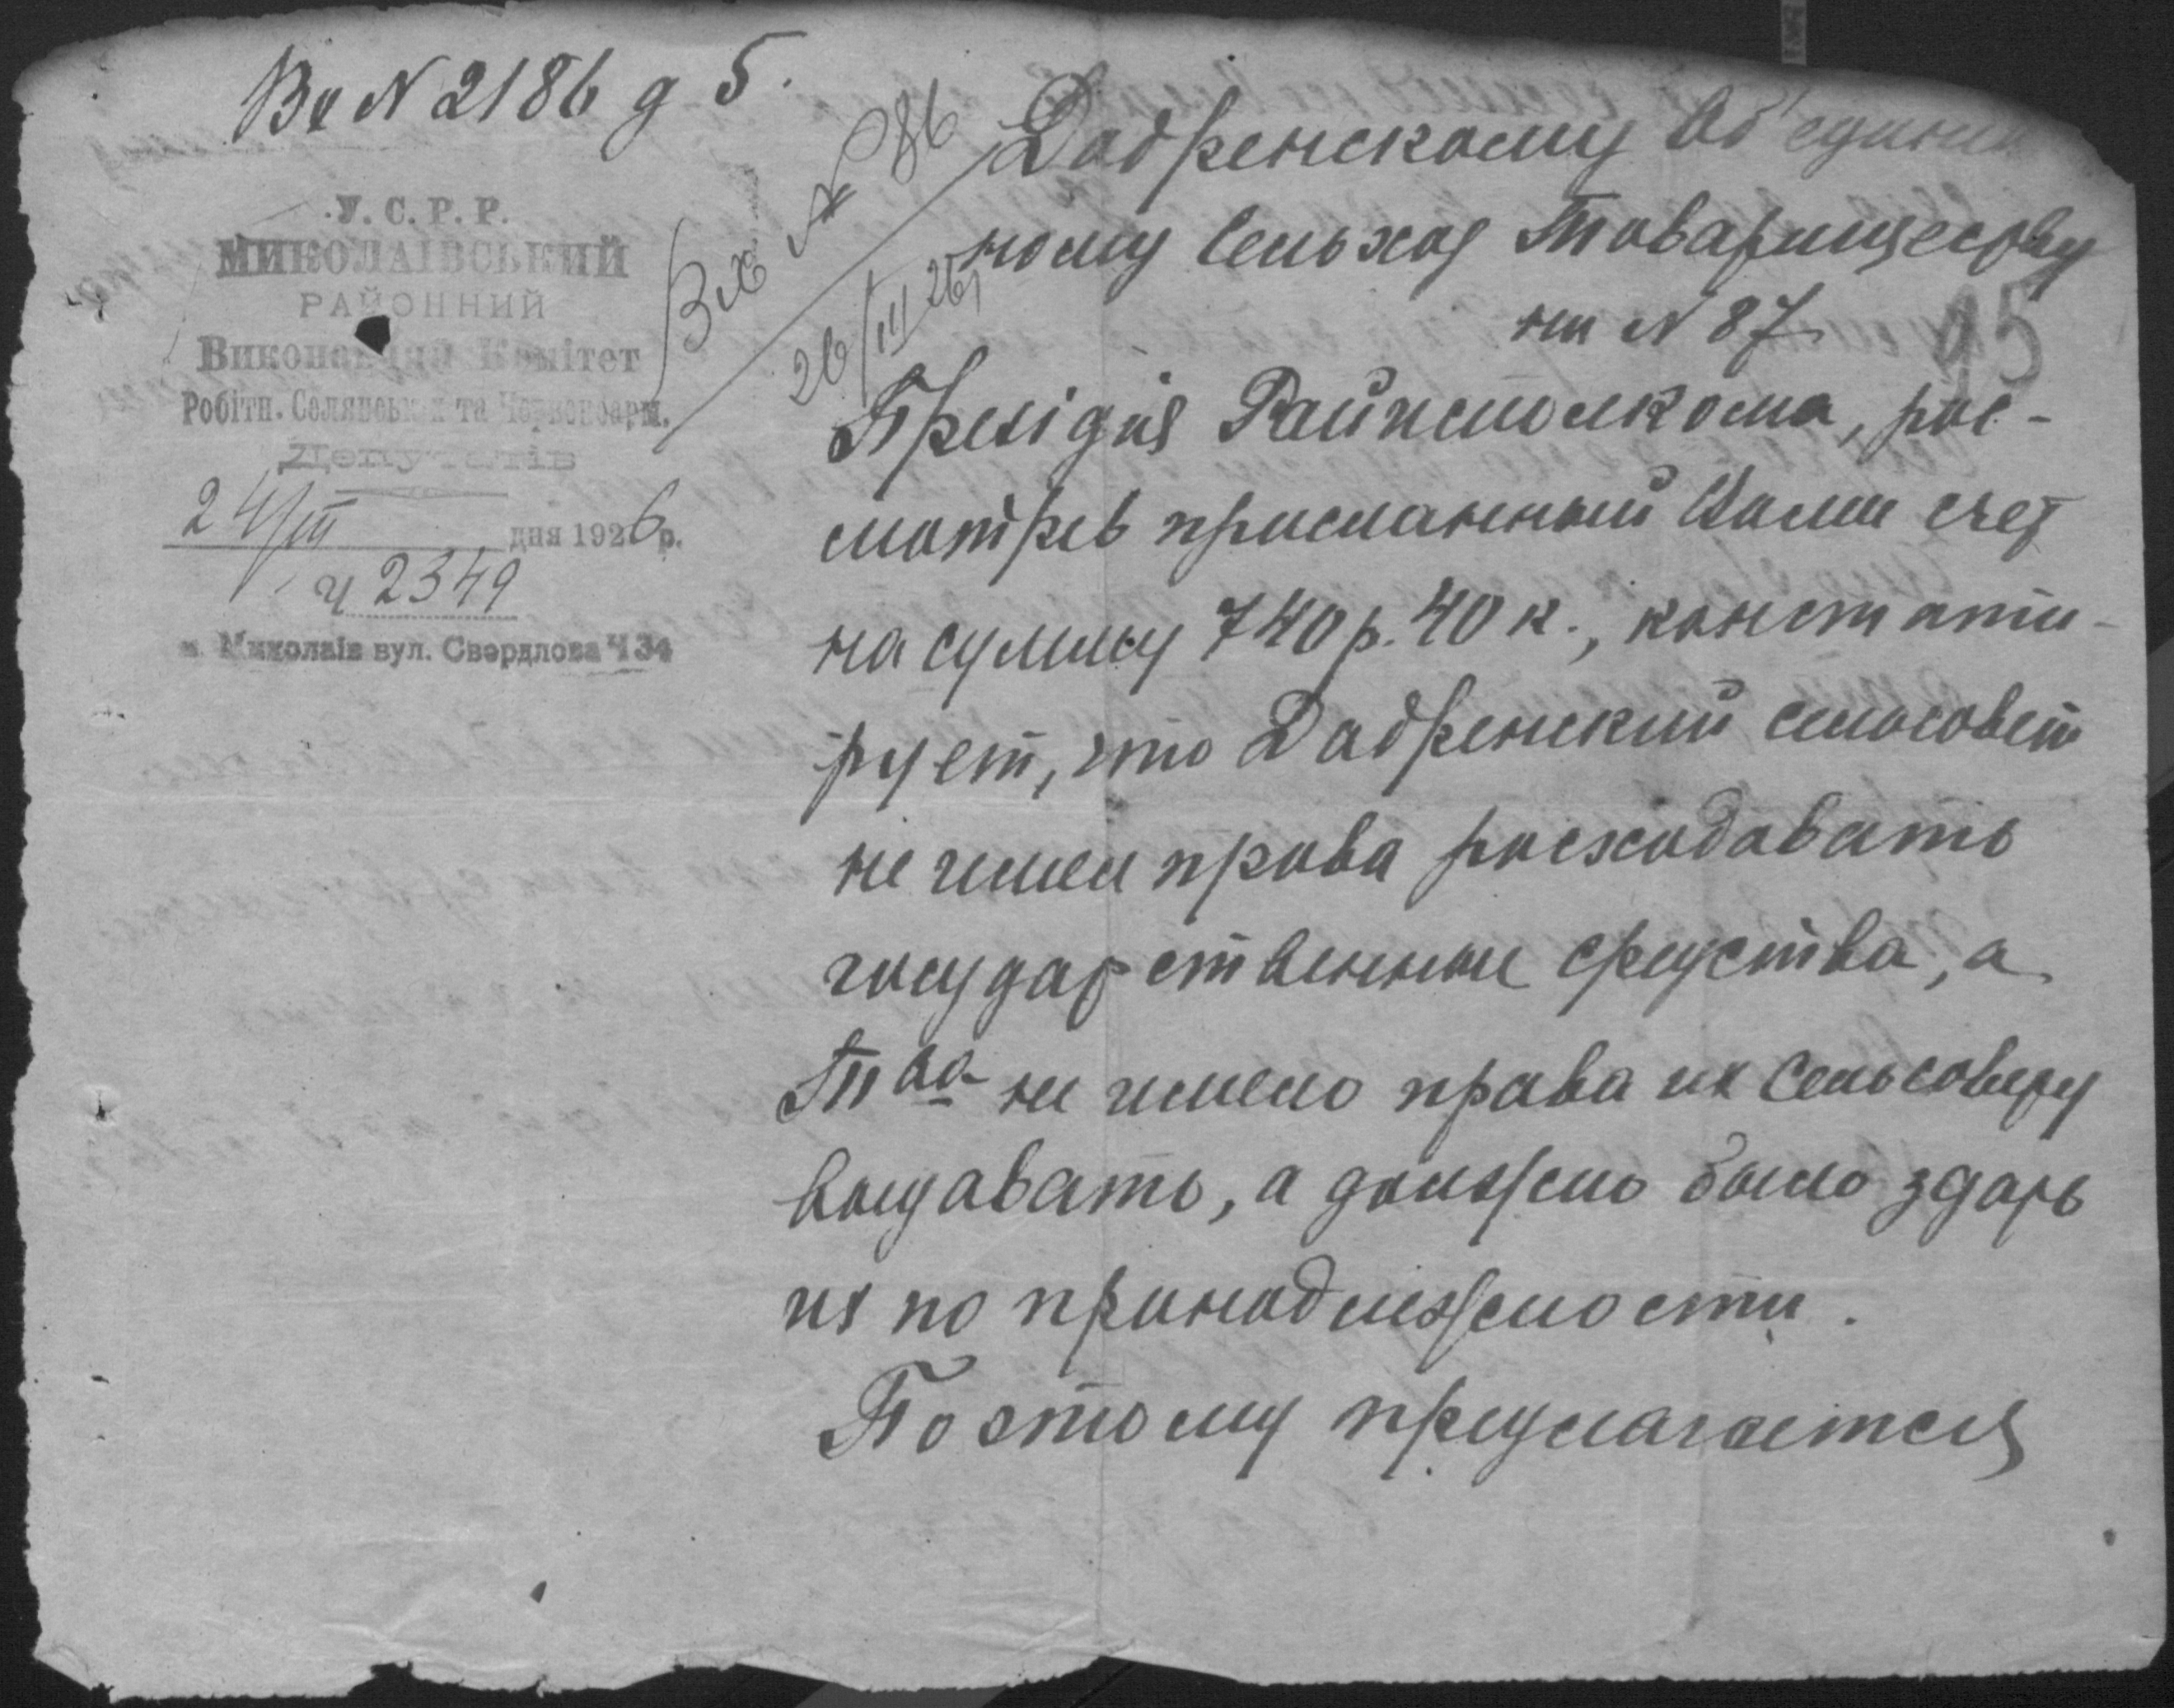 Вх N 2186 д 5.
У. С. Р. Р.
МИКОЛАІВСЬКИЙ
РАЙОННИЙ
Виконавчий Комітет
Робітн. Селянських та Червоноарм.
Депутатів
24/III дня 1926 р.
Ч 2349
м. Миколаів вул. Свердлова Ч 34
Вх № 86
26/III 26
15
Добренскому Об'единен
ному Сельхоз Товариществу
на N 87
Президія Райисполкома, рос-
мотрев присланный Вами счет
на сумму 740 р. 40 к., констати-
рует, что Добренский сельсовет
не имел права росходовать
государственные средства, а
Т-ва не имело права их Сельсовету
выдавать, а должно было здать
их по принадлежности.
Поэтому предлагается